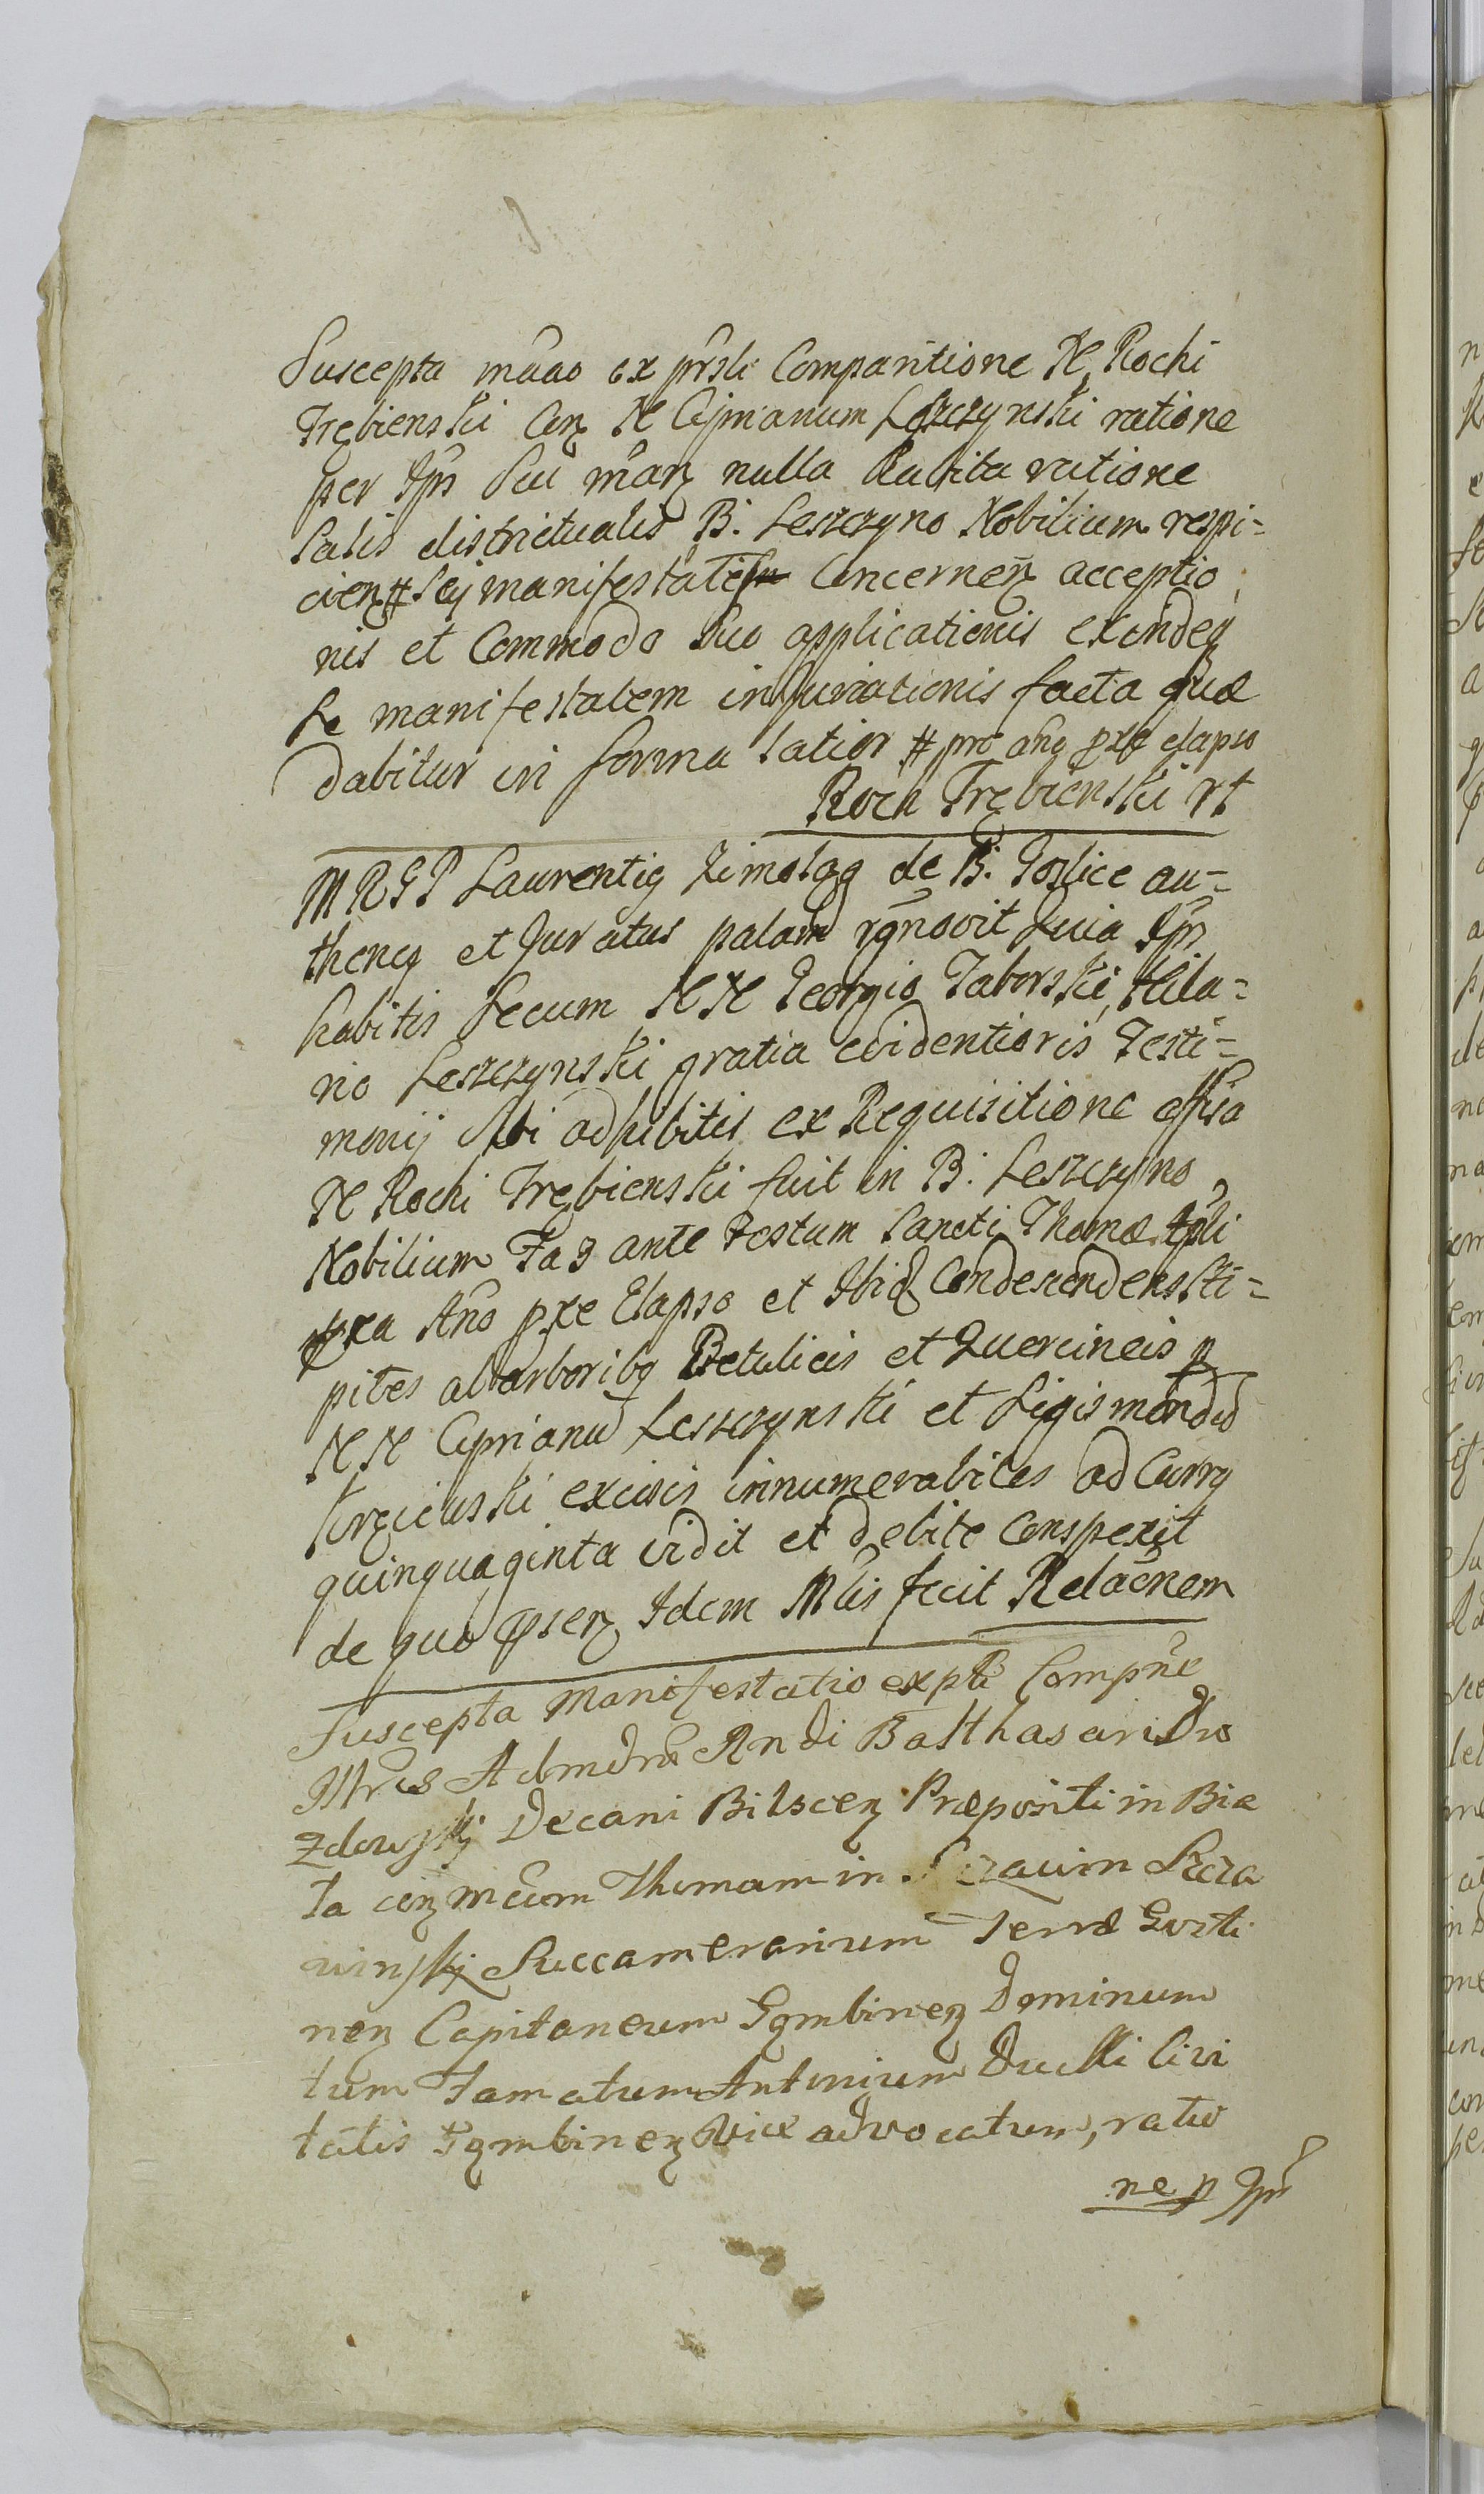 Suscepta mãao ex prsli Comparitione N. Rochi
Trębienski Con N Ciprianum Leszczynski ratione
per Ipm Sui marz nulla habita ratione
Salis districtualis B. Leszczyno Nobilium respi=
cien # Seij manifestatem Concernen acceptio
nis et Commodo Suo applicationis exindeq
Se manifestatem injuriationis facta quæ
dabitur in forma latior # pro ano pxe elapso
Roch Trębienski rt
MRGP Laurentig Zimolag de B. Goslice au=
theneg et Juratus palam rgnovit Quia Ipm
habitis Secum NN Georgio Taborski, Hila=
rio Leszczynski gratia evidentioris Testi=
monij Sibi adhibitis ex Requisitione offisa
N Rochi Trębienski fuit in B. Leszczyno
Nobilium Fa 3 ante Festum Sancti Thomæ Apli
pxa Ano pxe Elapso et Ibiq Condescendens Sti=
pites ab arboribg Betulicis et Quercineis p
NN Ciprianu Leszczynski et Sigismondu
excisis innumerabiles ad Curry
quinquaginta vidit et debite Conspexit
de quo psen Idem Mlis fecit Relaõnem
Suscepta Manifestatio ex pti Compne
Illris Admdru Rndi Balthasari Dro
zdowskij Decani Bilscen Præpositi in Bia
ła con Mcum Thomam in Szczawin Szcza
winskij Succamerarium Terræ Gosti
nen Capitaneum Gombinen Dominum
tum Famatum Antonium Duelli Civi
tatis Gombinen Vice advocatum, ratio
ne p Ipm